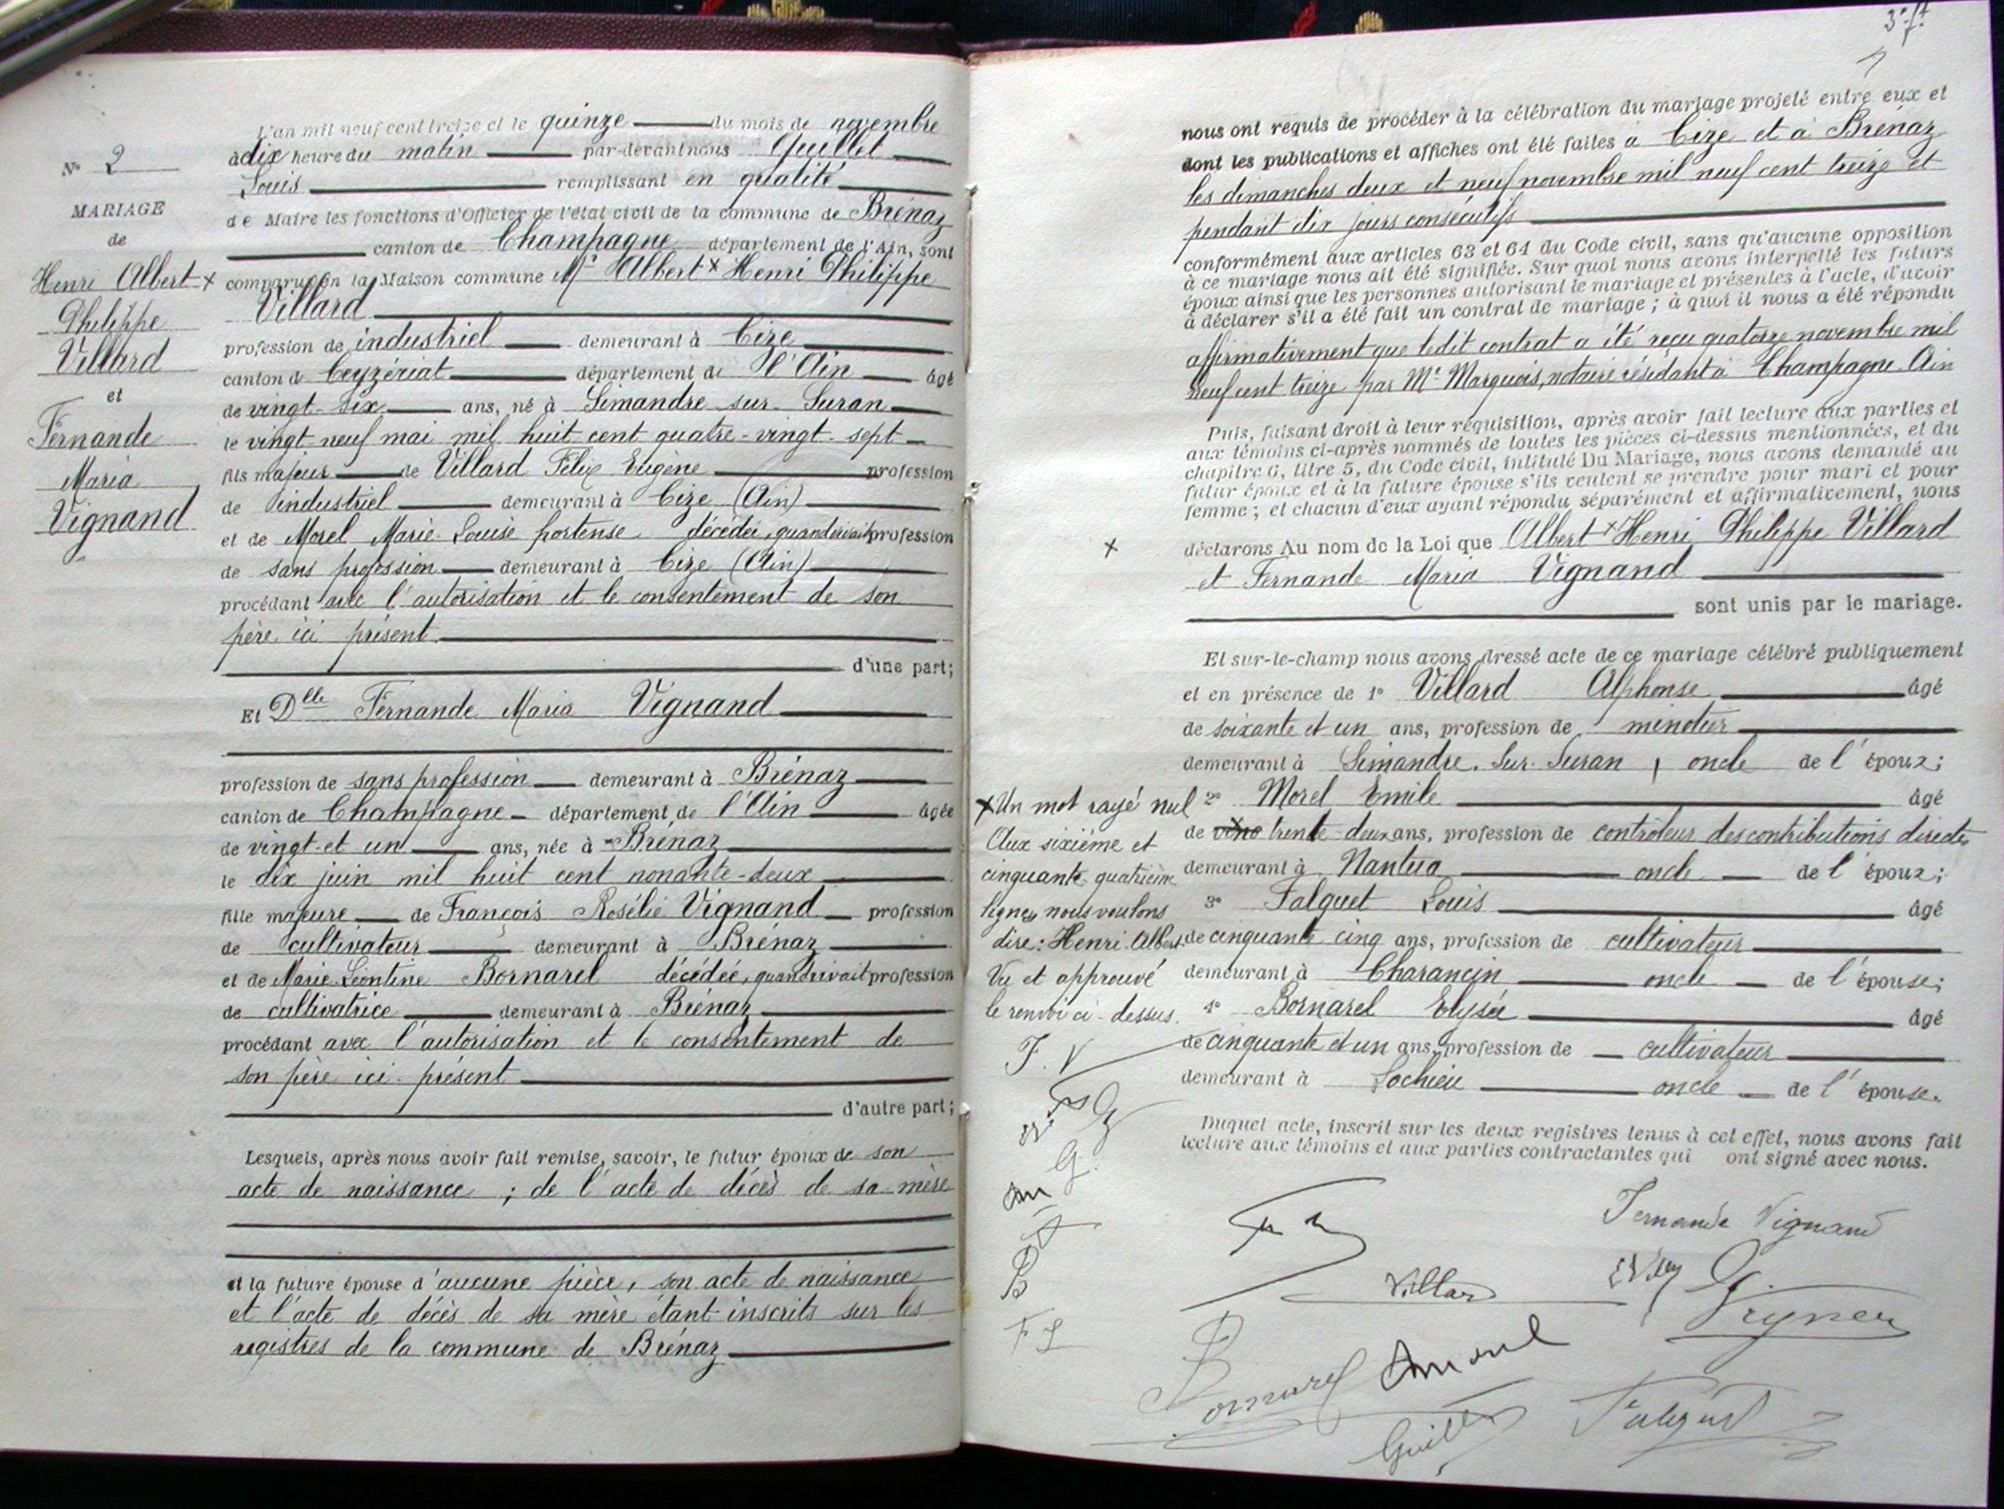 N° 2
MARIAGE
de
Henri Albert x
Philippe
Villard
et
Fernande
Maria
Vignand
L'an mil neuf cent treize et le quinze du mois de novembre
à dix heure du matin par-devant nous Guillet
Louis remplissant en qualité
de Maire les fonctions d'Officier de l'état civil de la commune de Brénaz
canton de Champagne département de l'Ain, sont
comparu en la Maison commune Mr Albert x Henri Philippe
Villard
profession de industriel demeurant à Cize
canton de Ceyzériat département de l'Ain âgé
de vingt-six ans, né à Simandre sur Suran
le vingt neuf mai mil huit cent quatre-vingt-sept
fils majeur de Villard Félix Eugène profession
de industriel demeurant à Cize (Ain)
et de Morel Marie Louise hortense décédée, quand vivait profession
de sans profession demeurant à Cize (Ain)
procédant avec l'autorisation et le consentement de son
père ici présent
d'une part;
Et Dlle Fernande Maria Vignand
profession de sans profession demeurant à Brénaz
canton de Champagne département de l'Ain âgée
de vingt et un ans, née à Brénaz
le dix juin mil huit cent nonante-deux
fille majeure de François Rosélie Vignand profession
de cultivateur demeurant à Brénaz
et de Marie Léontine Bornarel décédée, quand vivait profession
de cultivatrice demeurant à Brénaz
procédant avec l'autorisation et le consentement de
son père ici présent
d'autre part;
Lesquels, après nous avoir fait remise, savoir, le futur époux de son
acte de naissance ; de l'acte de décès de sa mère
et la future épouse d'aucune pièce, son acte de naissance
et l'acte de décès de sa mère étant inscrits sur les
registres de la commune de Brénaz
nous ont requis de procéder à la célébration du mariage projeté entre eux et
dont les publications et affiches ont été faites à Cize et à Brénaz
les dimanches deux et neuf novembre mil neuf cent treize et
pendant dix jours consécutifs
conformément aux articles 63 et 64 du Code civil, sans qu'aucune opposition
à ce mariage nous ait été signifiée. Sur quoi nous avons interpellé les futurs
époux ainsi que les personnes autorisant le mariage et présentes à l'acte, d'avoir
à déclarer s'il a été fait un contrat de mariage ; à quoi il nous a été répondu
affirmativement que ledit contrat a été reçu quatorze novembre mil
neuf cent treize par Me Marquois, notaire résidant à Champagne Ain
Puis, faisant droit à leur réquisition, après avoir fait lecture aux parties et
aux témoins ci-après nommés de toutes les pièces ci-dessus mentionnées, et du
chapitre 6, titre 5, du Code civil, intitulé Du Mariage, nous avons demandé au
futur époux et à la future épouse s'ils veulent se prendre pour mari et pour
femme ; et chacun d'eux ayant répondu séparément et affirmativement, nous
x déclarons Au nom de la Loi que Albert x Henri Philippe Villard
et Fernande Maria Vignand
sont unis par le mariage.
Et sur-le-champ nous avons dressé acte de ce mariage célébré publiquement
et en présence de 1° Villard Alphonse âgé
de soixante et un ans, profession de minotier
demeurant à Simandre. Sur Suran, oncle de l'époux;
2° Morel Emile âgé
de vino trente-deux ans, profession de contrôleur des contributions directes
demeurant à Nantua oncle de l'époux;
3° Falquet Louis âgé
de cinquante cinq ans, profession de cultivateur
demeurant à Charancin oncle de l'épouse;
4° Bornarel Elysée âgé
de cinquante et un ans, profession de cultivateur
demeurant à Lochieu oncle de l'épouse.
x Un mot rayé nul
Aux sixième et
cinquante quatrième
lignes nous voulons
dire: Henri Albert
Vu et approuvé
le renvoi ci-dessus.
F. V
G
B
F L
Duquel acte, inscrit sur les deux registres tenus à cet effet, nous avons fait
lecture aux témoins et aux parties contractantes qui ont signé avec nous.
Fernande Vignand
Villard
Bornarel
Guillet
Falquet